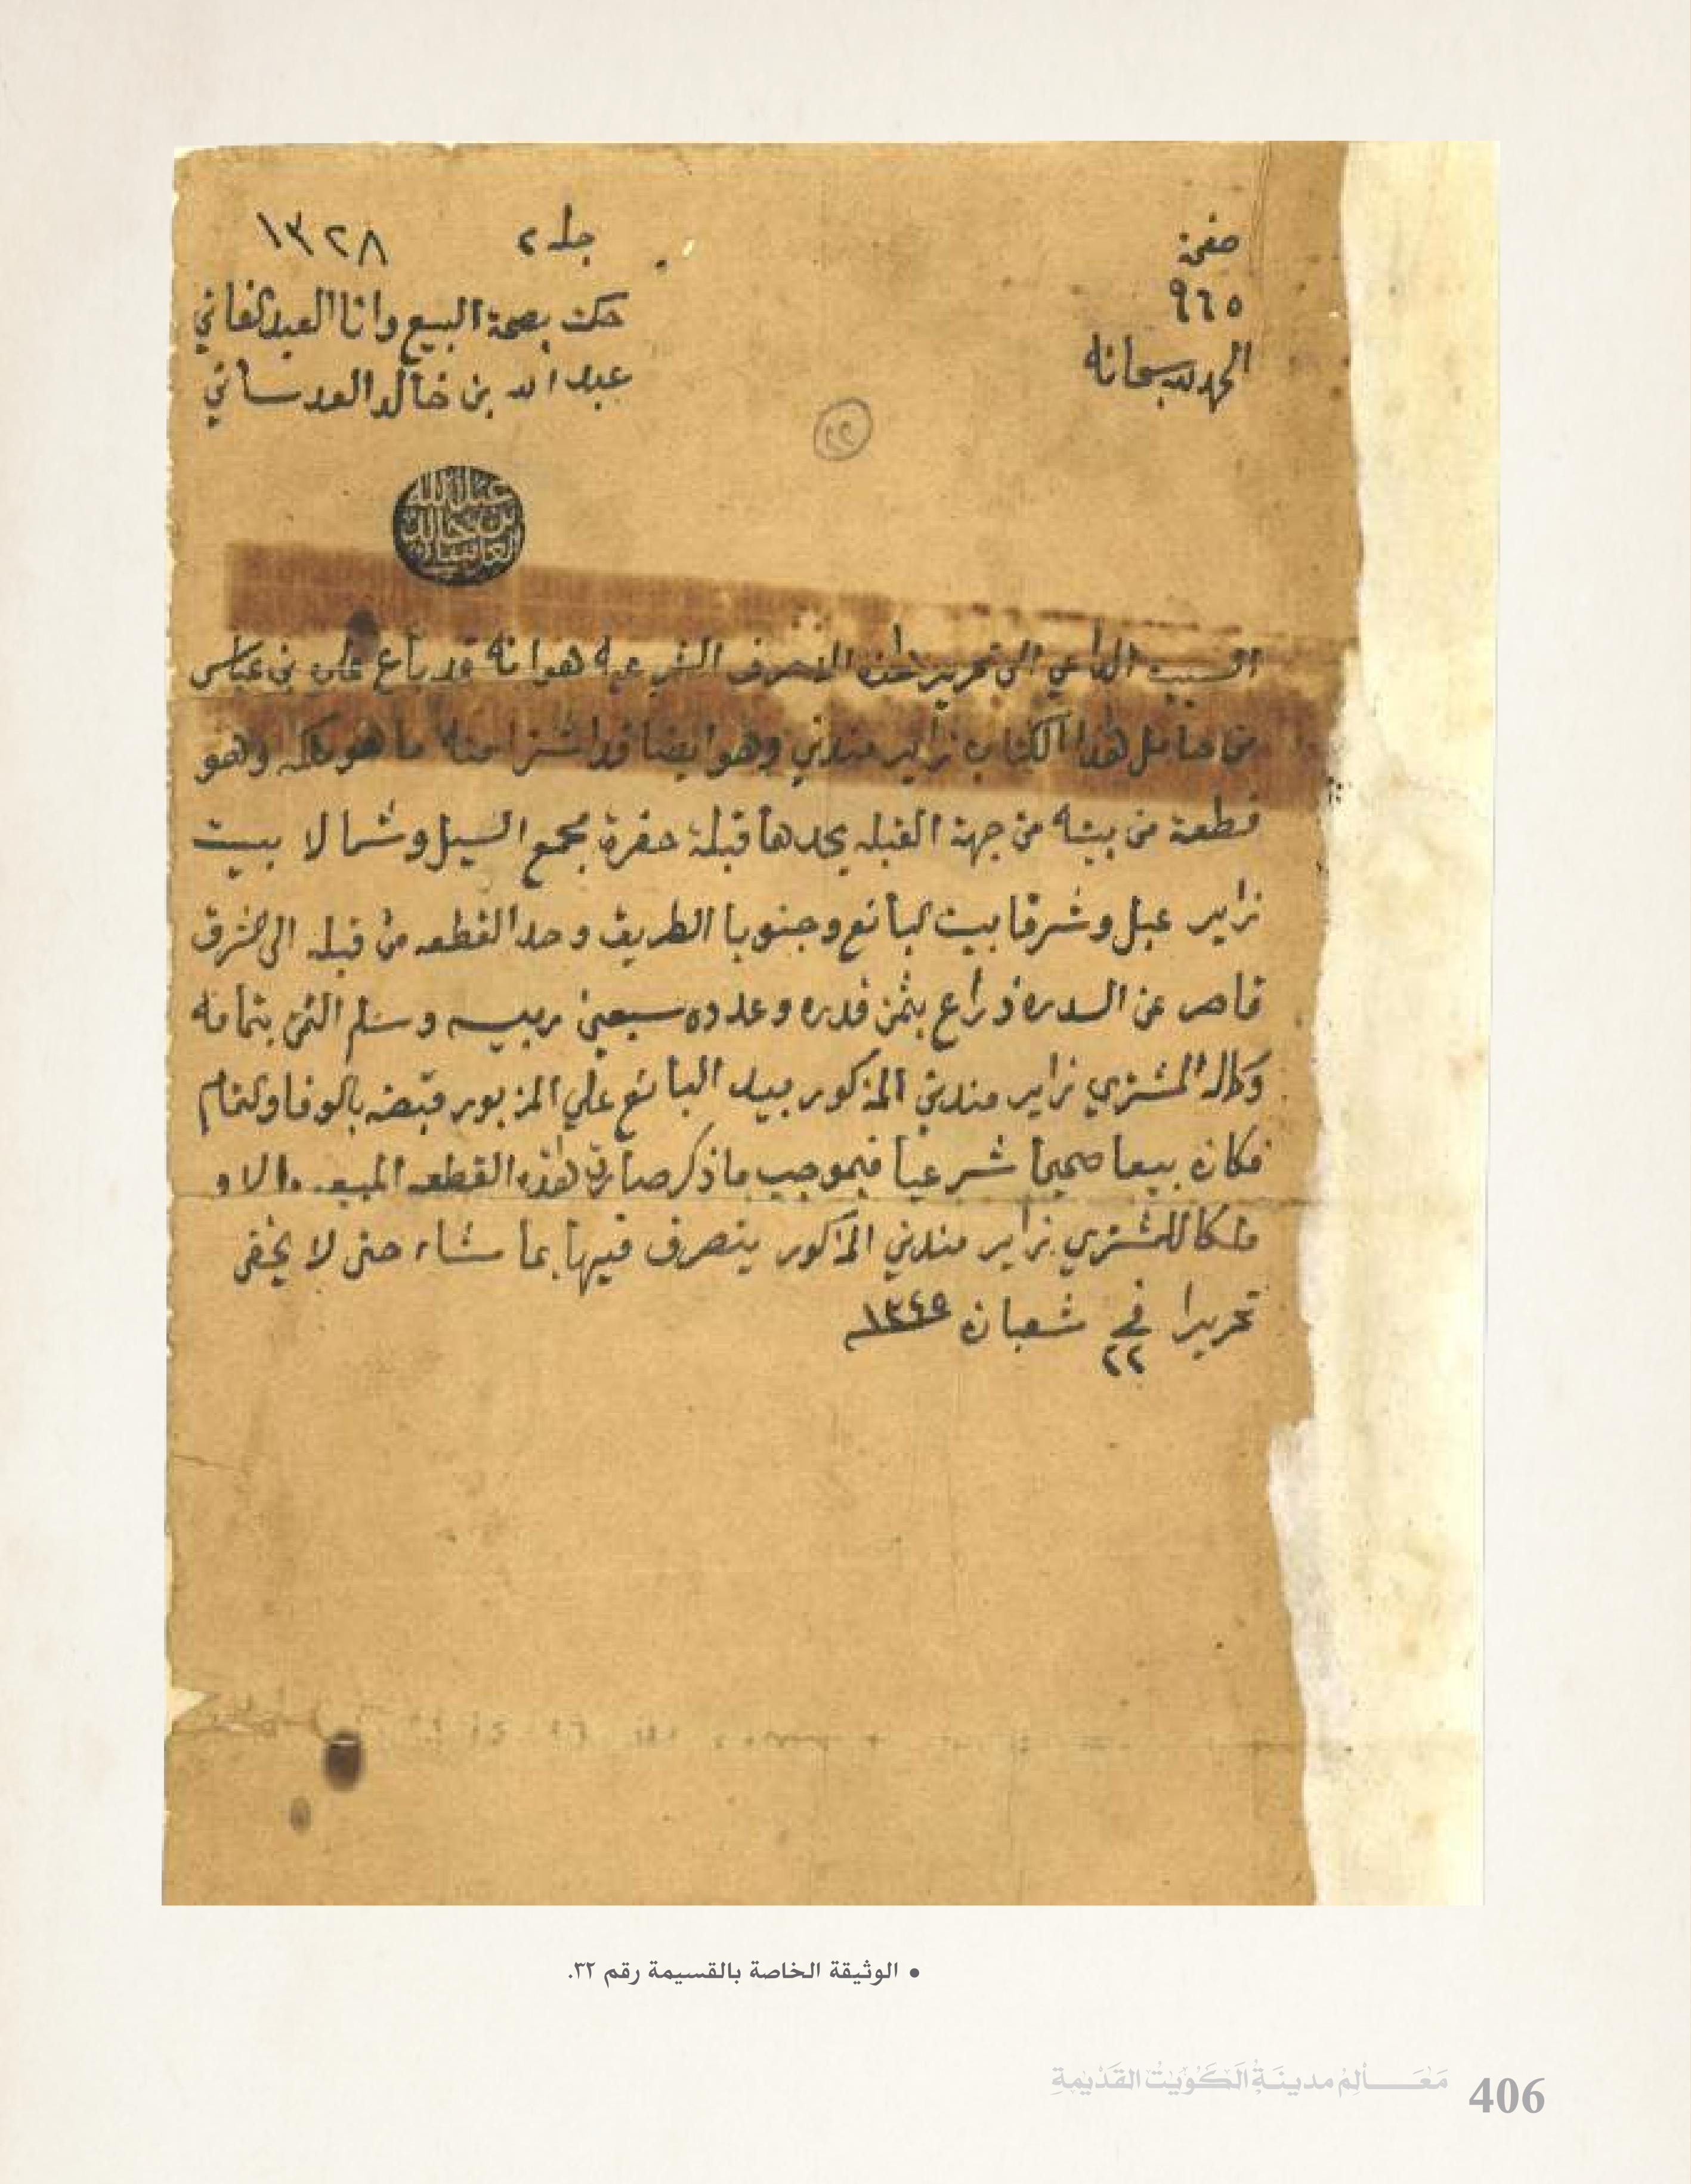 صفحة
٩٦٥
جلد ٢ ١٣٢٨
الحمد لله سبحانه
حكمت بصحة البيع وانا العبد الفاني
عبد الله بن خالد العدساني
عبد الله
بن خالد
العدساني
السبب الداعي الى تحرير هذه الاحرف الشرعيه هو انه قد باع علي بن عباس
من حامل هذا الكتاب زاير مندني وهو ايضا قد اشترا منه ما هو ملكه وهو
قطعة من بيته من جهة القبله يحدها قبلة حفرة مجمع السيل وشمالا بيت
زاير عبل وشرقا بيت البائع وجنوبا الطريق وحد القطعه من قبله الى شرق
قاصر عن السدره ذراع بثمن قدره وعدده سبعين ربيه وسلم الثمن بتمامه
وكماله المشتري زاير مندني المذكور بيد البائع علي المزبور قبضه بالوفا والتمام
فكان بيعا صحيحا شرعيا فبموجب ما ذكر صارت هذه القطعه المبيعه مالا و
ملكا للمشتري زاير مندني المذكور يتصرف فيها بما شاء حتى لا يخفى
تحريرا في ٢٢ شعبان ١٣٤٩
• الوثيقة الخاصة بالقسيمة رقم ٣٢.
مَعَالِمُ مدينَةِ الكُوَيْتِ القَدِيمَةِ 406